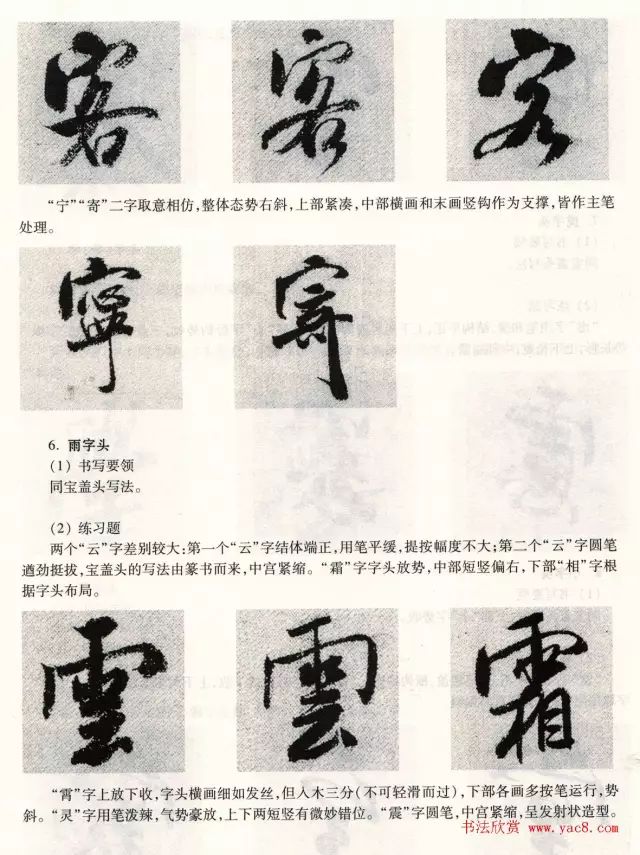 客 客 客
“宁”“寄”二字取意相仿,整体态势右斜,上部紧凑,中部横画和末画竖钩作为支撑,皆作主笔
处理。
寧 寄
6. 雨字头
(1) 书写要领
同宝盖头写法。
(2) 练习题
两个“云”字差别较大:第一个“云”字结体端正,用笔平缓,提按幅度不大;第二个“云”字圆笔
遒劲挺拔,宝盖头的写法由篆书而来,中宫紧缩。“霜”字字头放势,中部短竖偏右,下部“相”字根
据字头布局。
雲 雲 霜
“霄”字上放下收,字头横画细如发丝,但入木三分(不可轻滑而过),下部各画多按笔运行,势
斜。“灵”字用笔泼辣,气势豪放,上下两短竖有微妙错位。“震”字圆笔,中宫紧缩,呈发射状造型。
书法欣赏 www.yac8.com